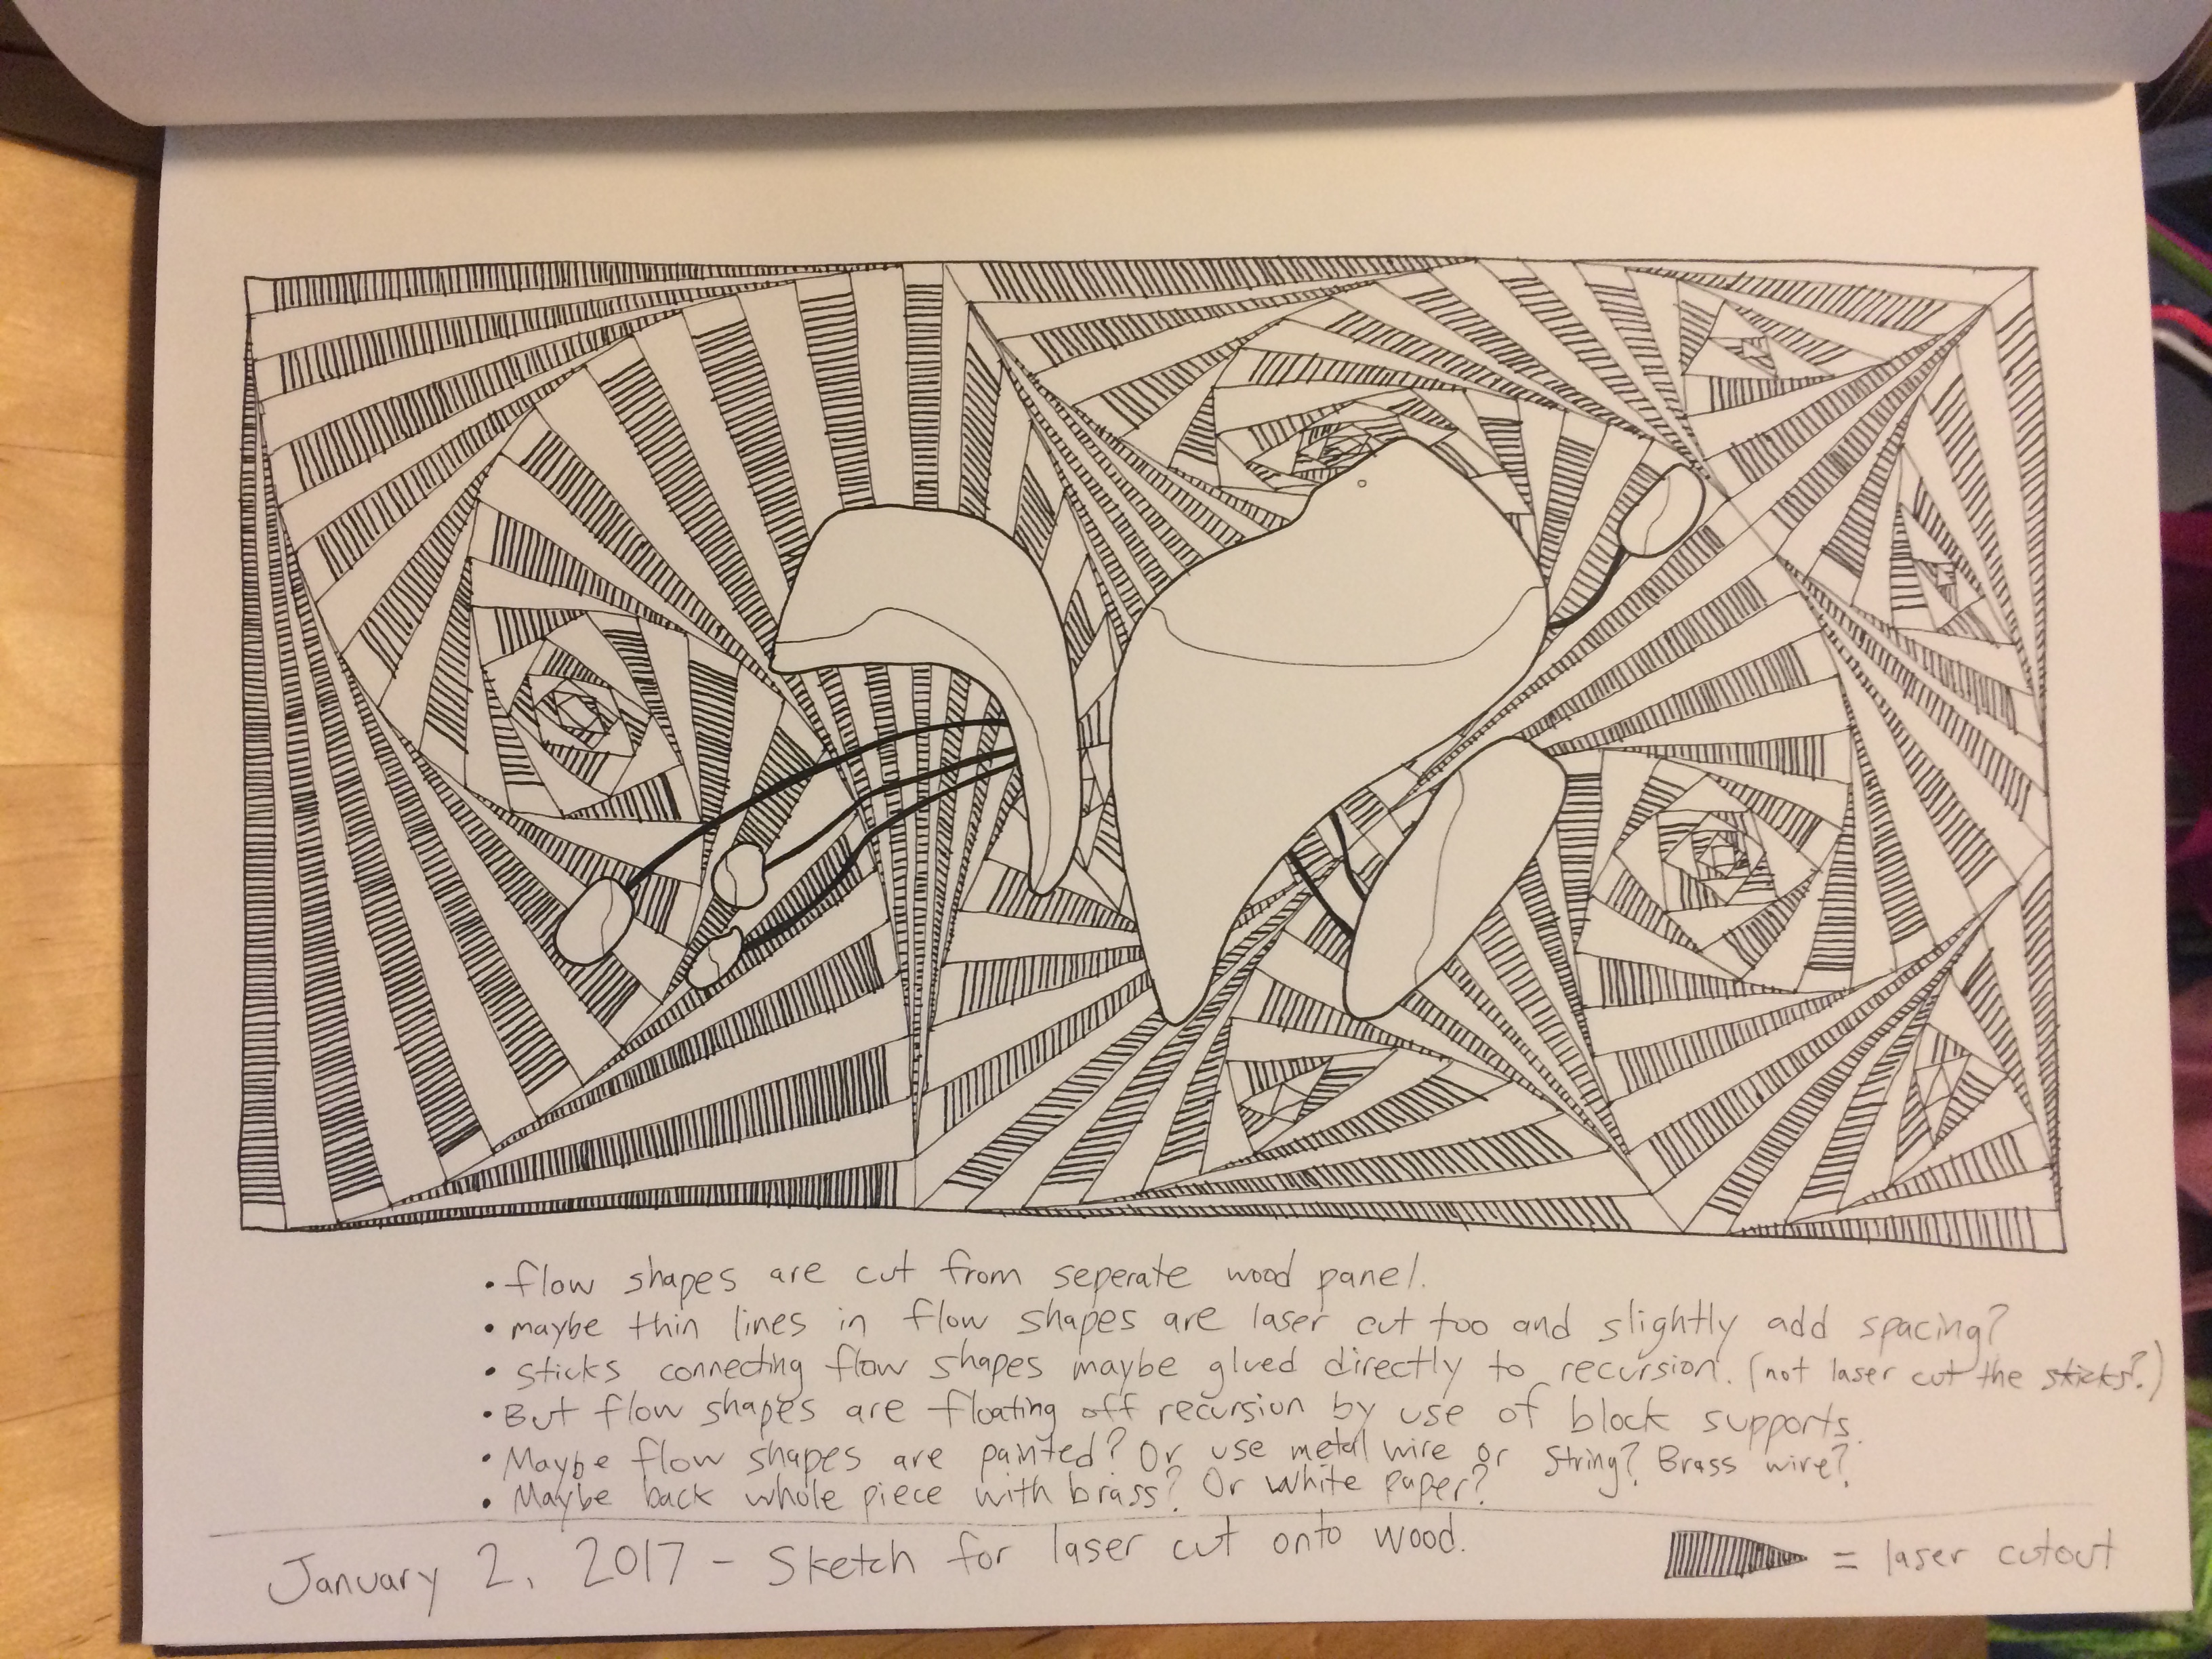 • flow shapes are cut from seperate wood panel.
• maybe thin lines in flow shapes are laser cut too and slightly add spacing?
• sticks connecting flow shapes maybe glued directly to recursion. (not laser cut the sticks?)
• But flow shapes are floating off recursion by use of block supports.
• Maybe flow shapes are painted? Or use metal wire or string? Brass wire?
• Maybe back whole piece with brass? Or white paper?
January 2, 2017 - Sketch for laser cut onto wood.
= laser cutout